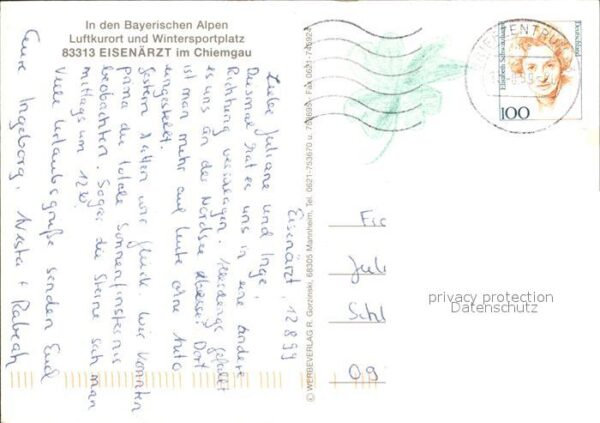 In den Bayerischen Alpen
Luftkurort und Wintersportplatz
83313 EISENÄRZT im Chiemgau
Eisenärzt, 12.8.99
Liebe Juliane und Inge!
Diesmal hat es uns in eine andere
Richtung verschlagen. Allerdings gefällt
es uns an der Nordsee besser! Dort
ist man mehr auf Leute ohne Auto
eingestellt.
Gestern hatten wir Glück. Wir konnten
prima die totale Sonnenfinsternis
beobachten. Sogar die Sterne sah man
mittags um 12³⁰.
Viele Urlaubsgrüße senden Euch
Eure Ingeborg, + Rabeah
© WERBEVERLAG R. Gorzinski, 68305 Mannheim, Tel. 0621-753670 u. Fax 0621
Deutschland
Elisabeth Schwarzhaupt
100
BRIEFZENTRUM
Jul
Schl
privacy protection
Datenschutz